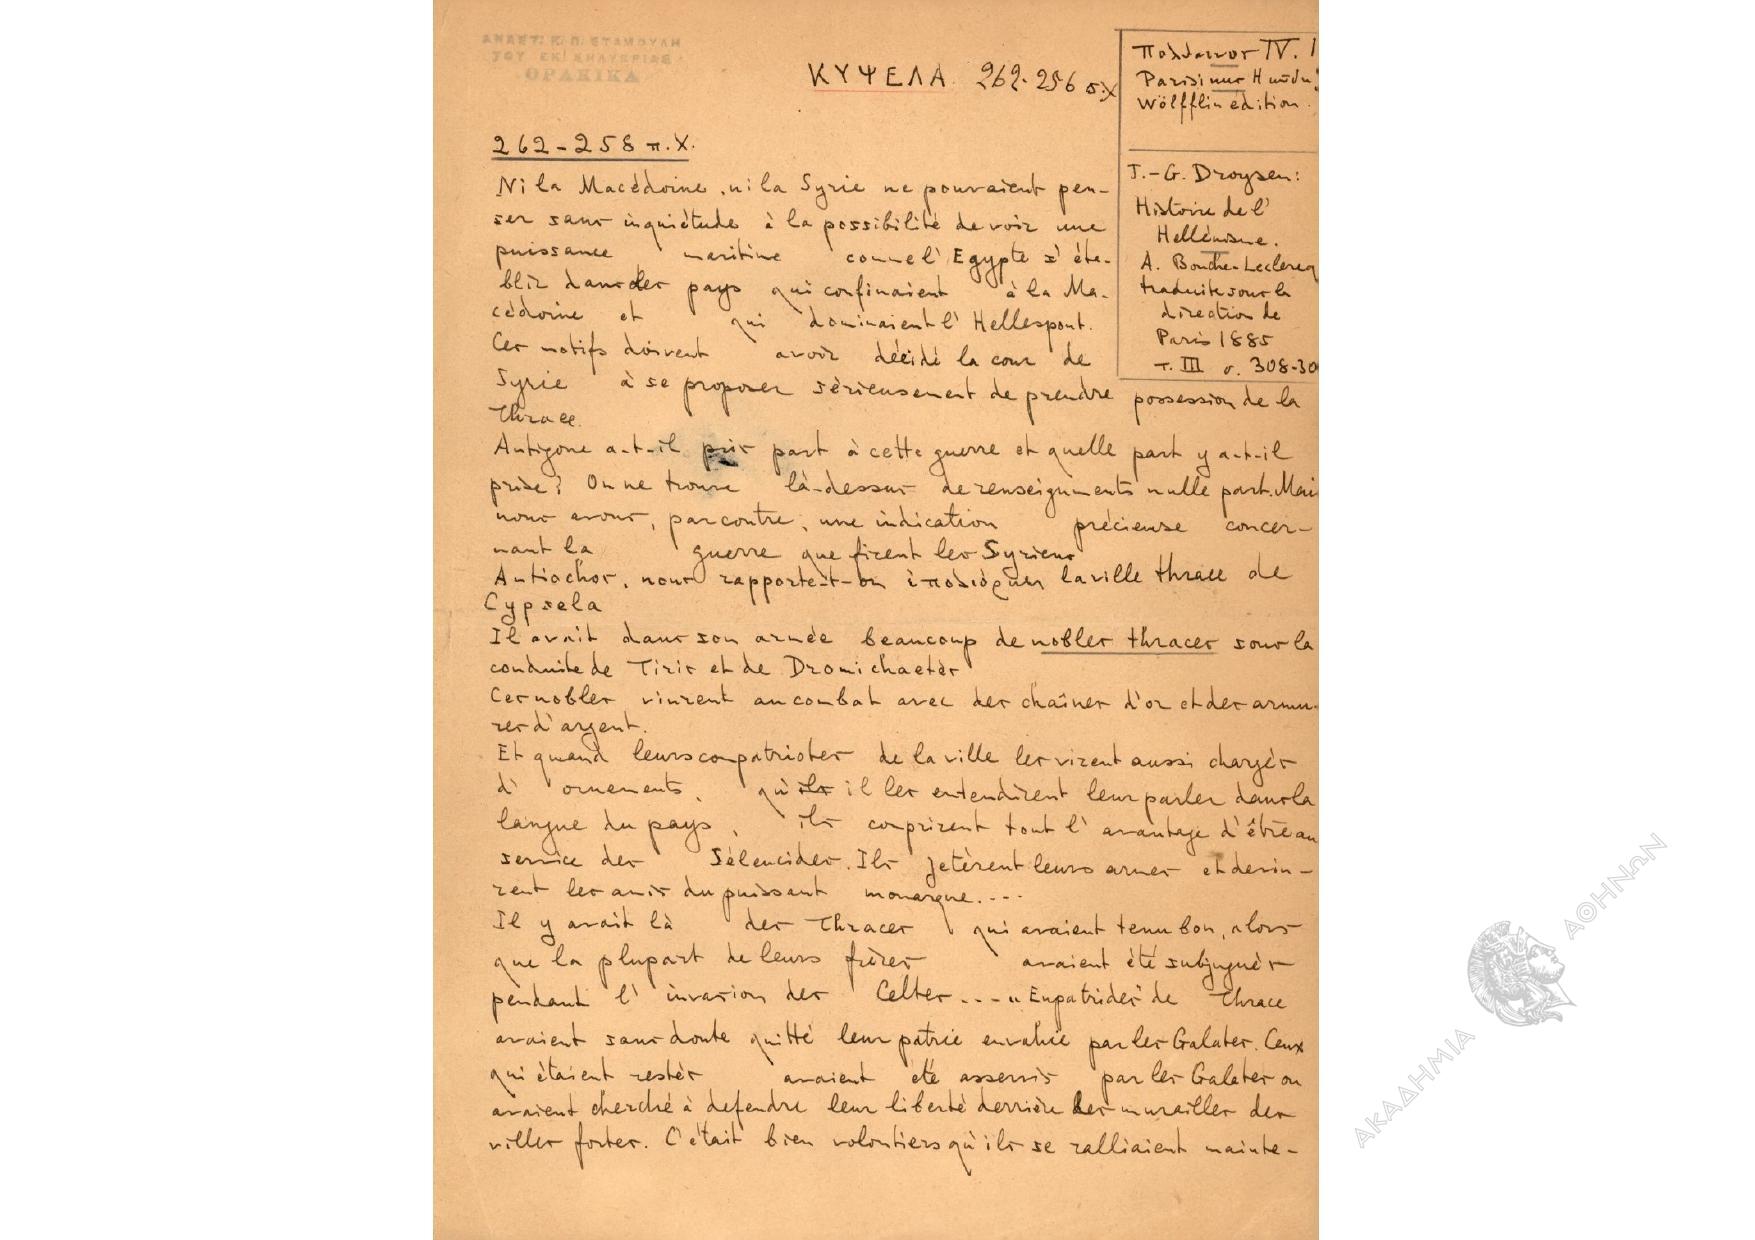 ΑΝΑΣΤ. Κ. Π. ΣΤΑΜΟΥΛΗ
ΤΟΥ ΕΚ ΣΗΛΥΒΡΙΑΣ
ΘΡΑΚΙΚΑ
ΚΥΨΕΛΑ 262-256 π.Χ
Πολύαινος IV. 1
Parisinus
Wölfflin édition.
J.-G. Droysen:
Histoire de l'
Hellénisme.
A. Bouche-Leclercq
traduite sous la
direction de
Paris 1885
τ. III σ. 308-30
262-258 π.Χ.
Ni la Macédoine, ni la Syrie ne pouvaient pen-
ser sans inquiétude à la possibilité de voir une
puissance maritime comme l'Egypte s'éta-
blir dans des pays qui confinaient à la Ma-
cédoine et qui dominaient l'Hellespont.
Ces motifs doivent avoir décidé la cour de
Syrie à se proposer sérieusement de prendre possession de la
Thrace.
Antigone a-t-il pris part à cette guerre et quelle part y a-t-il
prise? On ne trouve là-dessus de renseignements nulle part. Mais
nous avons, par contre, une indication précieuse concer-
nant la guerre que firent les Syriens
Antiochos, nous rapporte-t-on ἐπολιόρκει la ville thrace de
Cypsela
Il avait dans son armée beaucoup de nobles thraces sous la
conduite de Tiris et de Dromichaetès
Ces nobles vinrent au combat avec des chaînes d'or et des armu-
res d'argent.
Et quand leurs compatriotes de la ville les virent aussi chargés
d' ornements, qu'ils il les entendirent leur parler dans la
langue du pays, ils comprirent tout l'avantage d'être au
service des Séleucides. Ils jetèrent leurs armes et devin-
rent les amis du puissant monarque....
Il y avait là des Thraces qui avaient tenu bon, alors
que la plupart de leurs frères avaient été subjugués
pendant l'invasion des Celtes.... "Eupatrides" de Thrace
avaient sans doute quitté leur patrie envahie par les Galates. Ceux
qui étaient restés avaient été asservis par les Galates ou
avaient cherché à defendre leur liberté derrière les murailles des
villes fortes. C'était bien volontiers qu'ils se ralliaient mainte-
ΑΚΑΔΗΜΙΑ ΑΘΗΝΩΝ